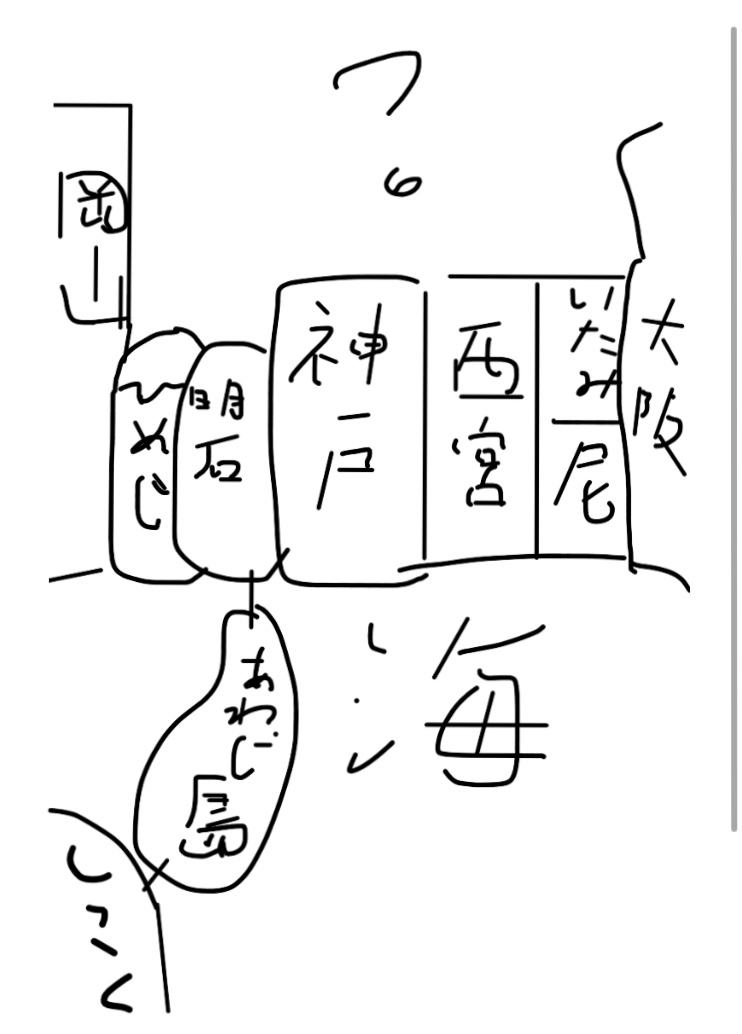 ?
岡山
ひめじ
明石
神戸
西宮
いたみ
尼
大阪
あわじ島
海
しこく